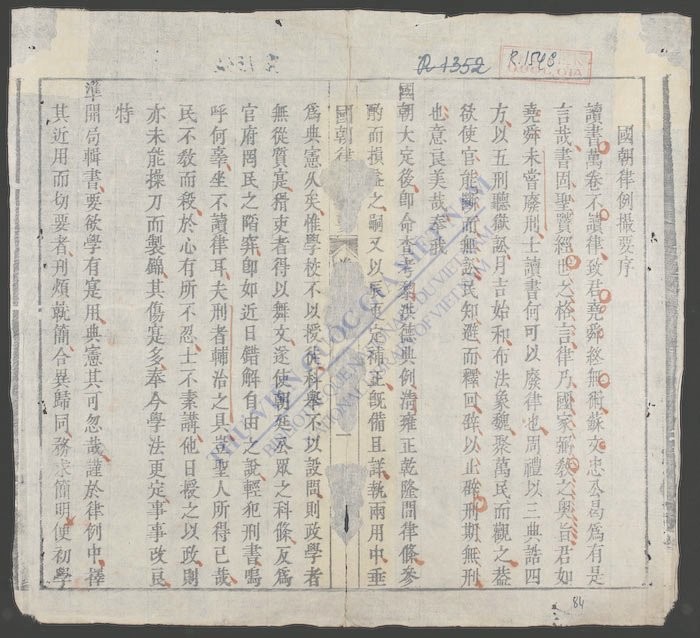 R 1352
R.1546
國朝律例撮要序
讀書萬卷不讀律致君堯舜終無術蘇文忠公曷為有是
言哉書固聖賢經世之格言律乃國家弼敎之奧旨君如
堯舜未嘗廢刑士讀書何可以廢律也周禮以三典誥四
方以五刑聽獄訟月吉始和布法象魏聚萬民而觀之蓋
欲使官能斷而無訟民知避而釋回辟以止辟刑期無刑
也意良美哉奉我
國朝大定後卽命查考黎洪德典例清雍正乾隆間律條參
酌而損益之嗣又以更定補正旣備且詳執兩用中垂
國朝律
一
爲典憲久矣惟學校不以授徒科舉不以設問則政學者
無從質寔猾吏者得以舞文遂使朝廷公眾之科條反爲
官府罔民之陷穽卽如近日錯解自由之說輕犯刑書嗚
呼何辜坐不讀律耳夫刑者輔治之具豈聖人所得已哉
民不敎而殺於心有所不忍士不素講他日授之以政則
亦未能操刀而製錦其傷寔多奉今學法更定事事改良
特
準開局輯書要欲學有寔用典憲其可忽哉謹於律例中擇
其近用而切要者刋煩就簡合異歸同務求簡明使初學
THƯ VIỆN QUỐC GIA VIỆT NAM
BIBLIOTHEQUE NATIONALE DU VIETNAM
NATIONAL LIBRARY OF VIETNAM
84